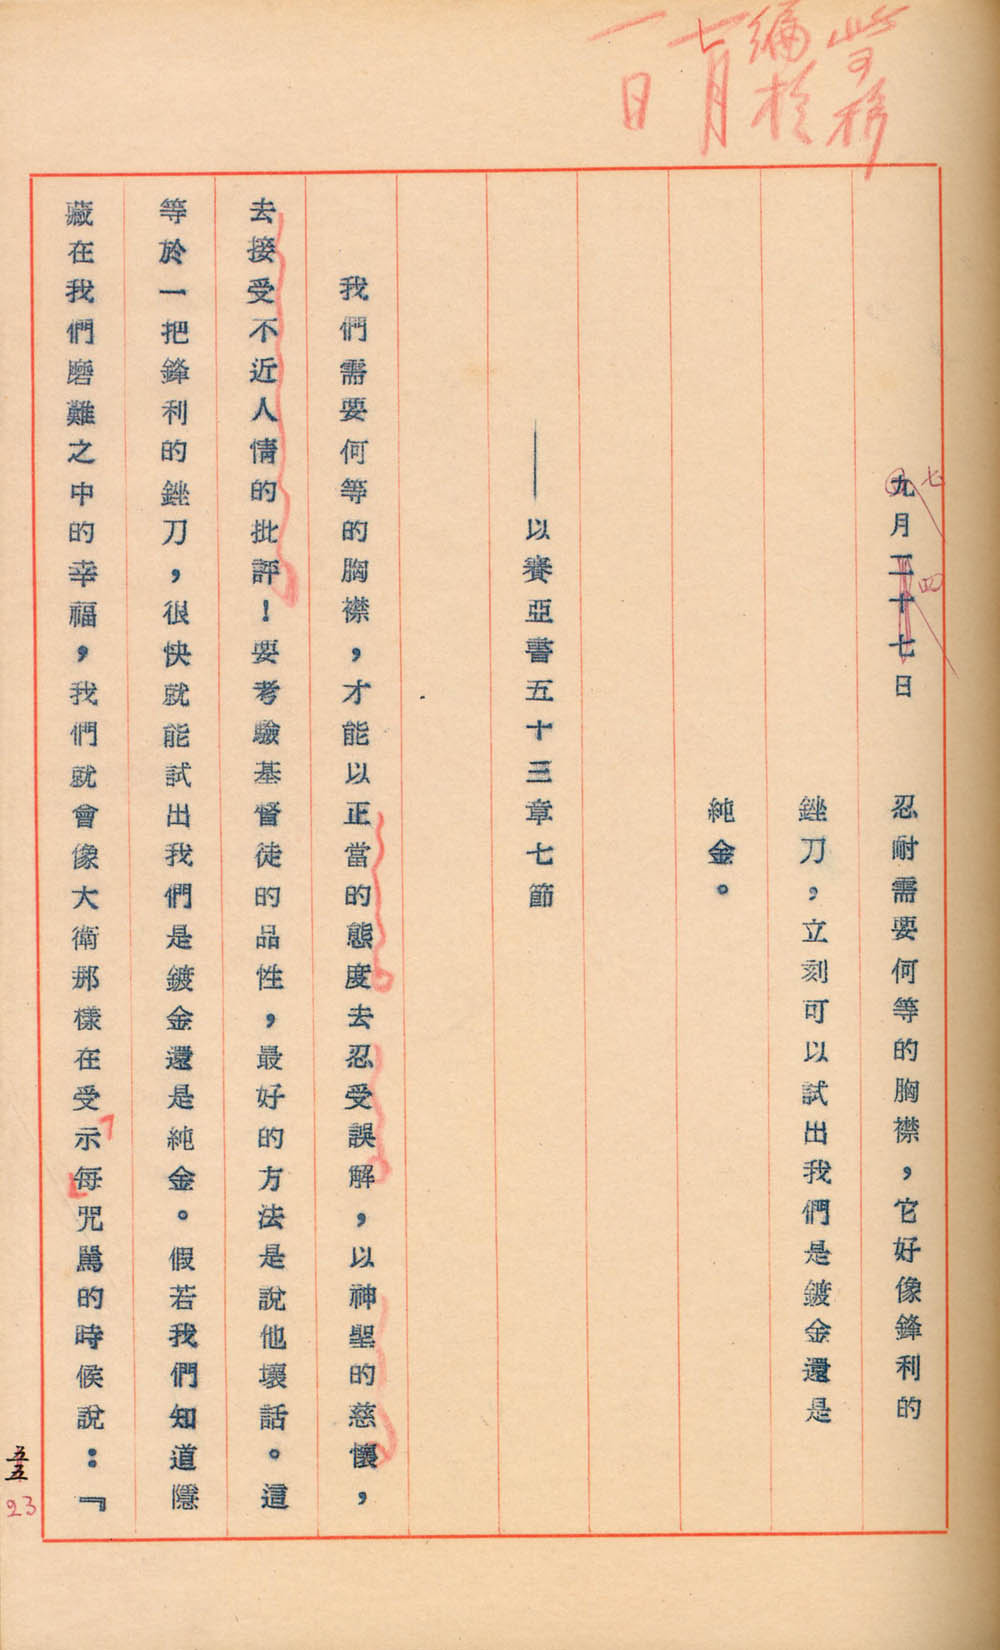 編於
七月
一日
七
四
九月二十七日
忍耐需要何等的胸襟，它好像鋒利的
銼刀，立刻可以試出我們是鍍金還是
純金。
——以賽亞書五十三章七節
我們需要何等的胸襟，才能以正當的態度去忍受誤解，以神聖的慈懷，
去接受不近人情的批評！要考驗基督徒的品性，最好的方法是說他壞話。這
等於一把鋒利的銼刀，很快就能試出我們是鍍金還是純金。假若我們知道隱
藏在我們磨難之中的幸福，我們就會像大衛那樣在受示每咒罵的時候說：『
五五
23